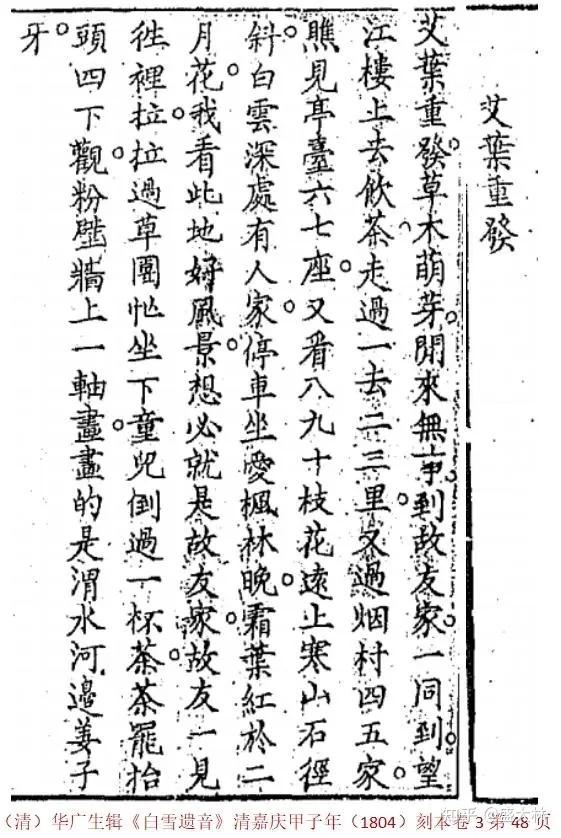 艾葉重發
艾葉重發草木萌芽。閒來無事到故友家。一同到望
江樓上去飲茶。走過一去二三里。又過烟村四五家。
瞧見亭臺六七座。又看八九十枝花。遠上寒山石徑
斜。白雲深處有人家。停車坐愛楓林晚。霜葉紅於二
月花。我看此地好風景想必就是故友家。故友一見
徃裡拉。拉過草團他坐下。童兒倒過一杯茶。茶罷抬
頭四下觀粉壁牆上一軸畫畫的是渭水河邊姜子
牙。
（清）华广生辑《白雪遗音》清嘉庆甲子年（1804）刻本卷3第48页
知乎 @盛大林